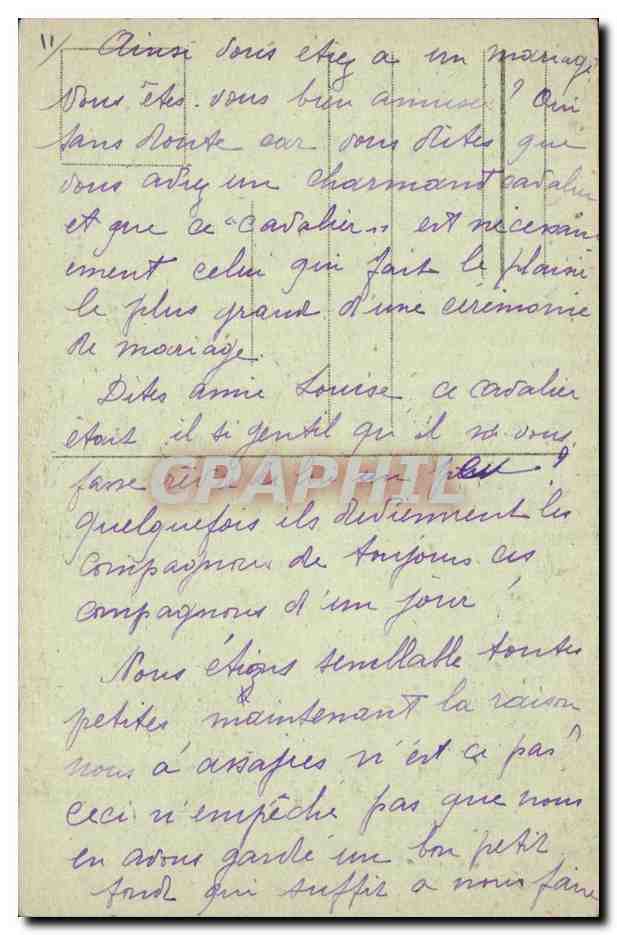 11/ Ainsi vous etiez a un mariage.
Vous êtes-vous bien amusée? Oui
sans doute car vous dites que
vous aviez un charmant cavalier
et que ce "cavalier" est nécessair
ement celui qui fait le plaisir
le plus grand d'une cérémonie
de mariage.
Dites amie Louise ce cavalier
était il si gentil qu'il ne vous
fasse un peu?
CPAPHIL
quelquefois ils deviennent les
compagnons de toujours ces
compagnons d'un jour!
Nous étions semblable toutes
petites maintenant la raison
nous a assagies n'est ce pas?
Ceci n'empêche pas que nous
en avons gardé un bon petit
fond qui suffit a nous faire